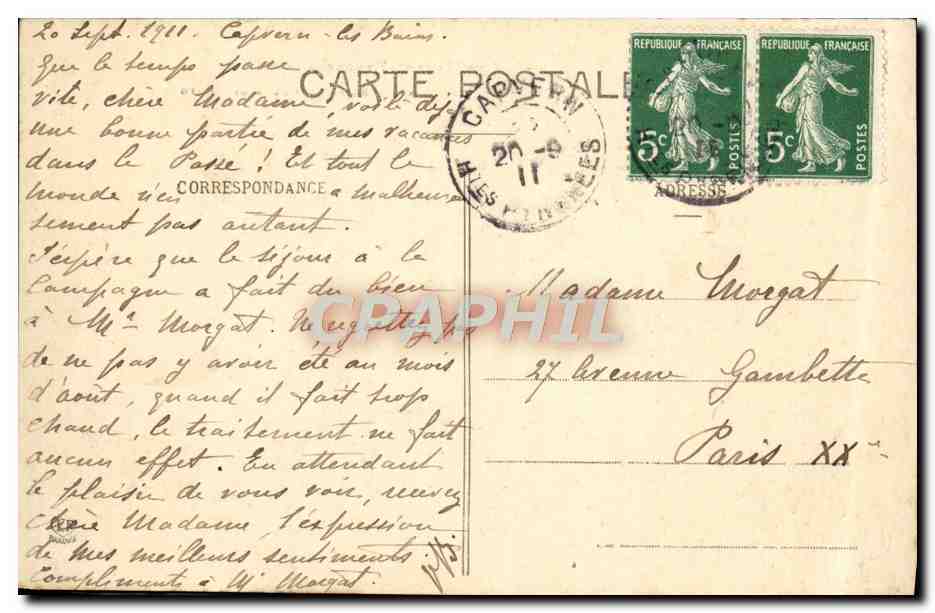 20 Sept. 1911. Capvern-les Bains.
Que le temps passe
CARTE POSTALE
vite, chère Madame voilà déjà
une bonne partie de mes vacances
dans le Passé ! Et tout le
monde n'en a malheureu
CORRESPONDANCE
sement pas autant.
J'espère que le séjour à la
Campagne a fait du bien
à Mr Morgat. Ne regrettez pas
de ne pas y avoir été au mois
d'août, quand il fait trop
chaud, le traitement ne fait
aucun effet. En attendant
le plaisir de vous voir, recevez
chère Madame l'expression
de mes meilleurs sentiments.
Compliments à Mr Morgat.
CAPVERN
20 -9
11
HTES PYRENEES
REPUBLIQUE FRANÇAISE
5c
POSTES
REPUBLIQUE FRANÇAISE
5c
POSTES
20 -9
11
ADRESSE
Madame Morgat
27 Avenue Gambetta
Paris XXe
CPAPHIL